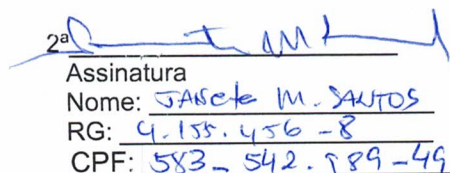 2ª
Assinatura
Nome: JANete M. SANTOS
RG: 4.155.456-8
CPF: 583-542.589-49